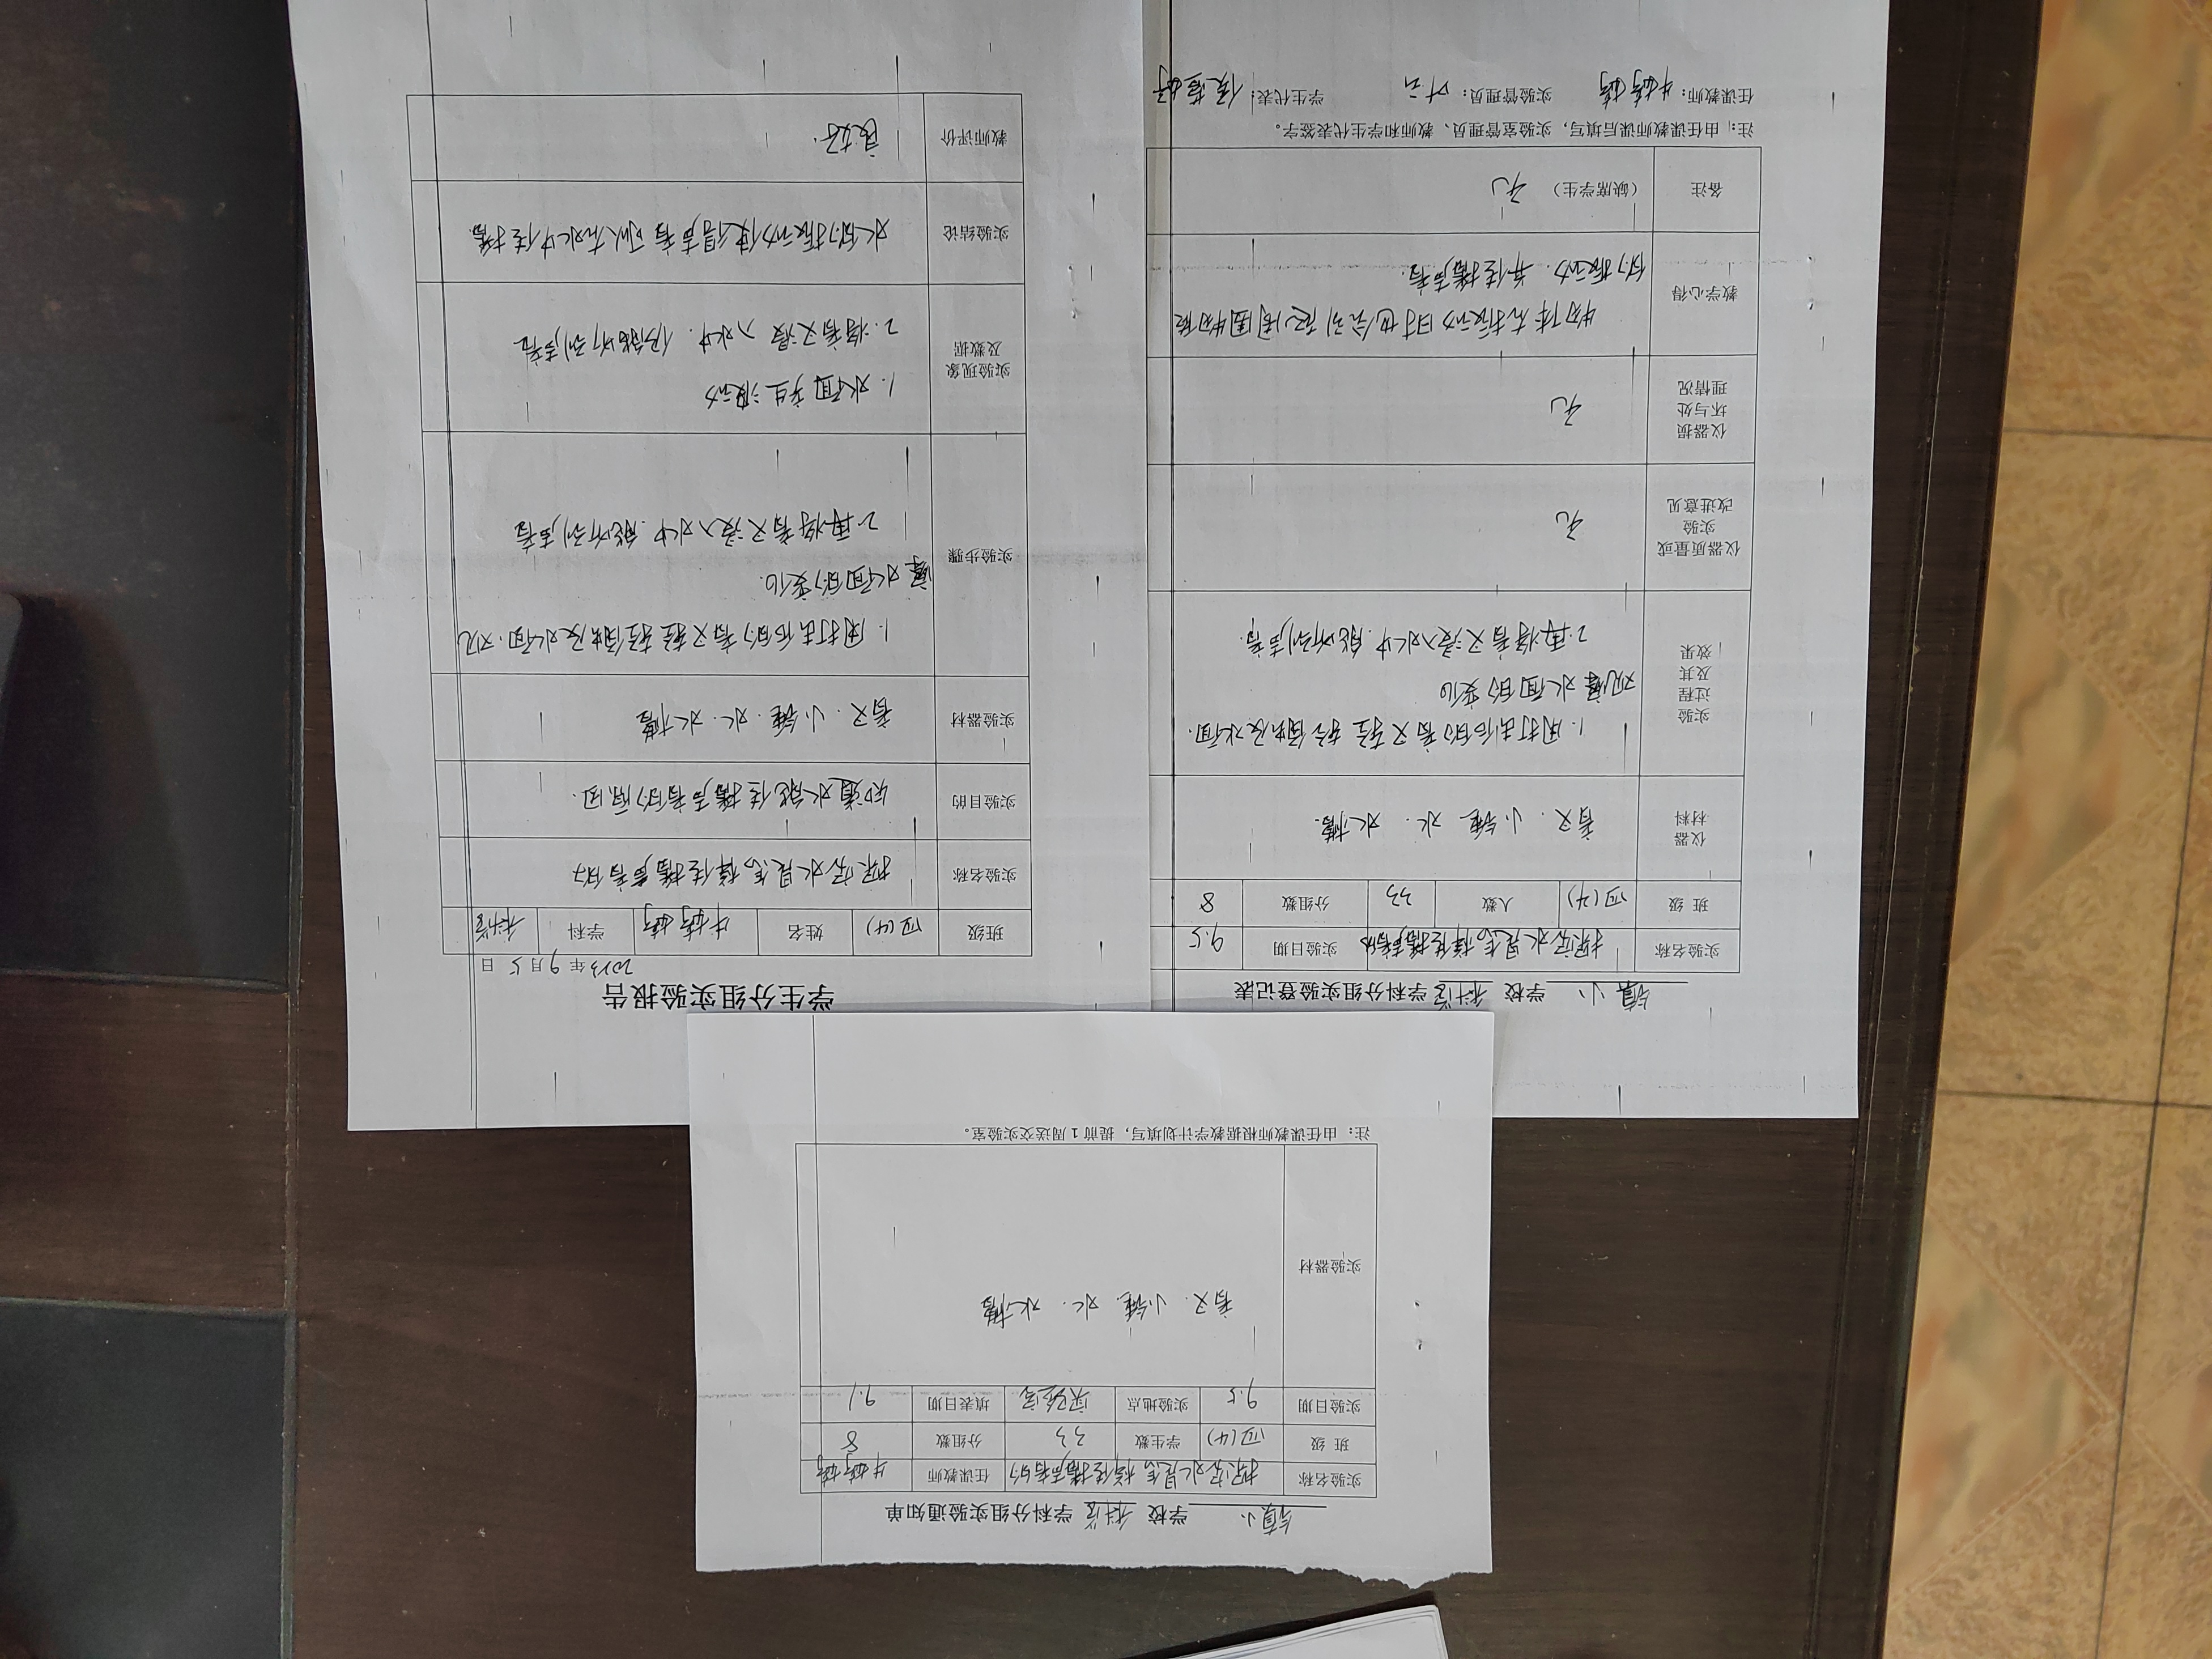 镇小 学校 科学 学科分组实验通知单
实验名称 探究水是怎样传播声音的 任课教师 牛婷婷
班 级 四(4) 学生数 33 分组数 8
实验日期 9.5 实验地点 实验室 填表日期 9.1
实验器材 音叉. 小锤. 水. 水槽
注: 由任课教师根据教学计划填写, 提前 1 周送交实验室。
镇小 学校 科学 学科分组实验登记表
实验名称 探究水是怎样传播声音的 实验日期 9.5
班 级 四(4) 人数 33 分组数 8
仪器
材料
音叉. 小锤. 水. 水槽.
实验
过程
及其
效果
1. 用打击后的音叉轻轻触及水面.
观察水面的变化
2. 再将音叉浸入水中. 能听到声音.
仪器质量或
实验
改进意见
无
仪器损
坏与处
理情况
无
教学心得
物体在振动时也会引起周围物质
的振动. 并传播声音.
备注 (缺席学生) 无
注: 由任课教师课后填写, 实验室管理员、教师和学生代表签字。
任课教师: 牛婷婷 实验管理员: 叶云 学生代表:
学生分组实验报告
2023年 9月 5 日
班级 四(4) 姓名 牛婷婷 学科 科学
实验名称 探究水是怎样传播声音的
实验目的 知道水能传播声音的原因.
实验器材 音叉. 小锤. 水. 水槽
实验步骤
1. 用打击后的音叉轻轻触及水面. 观
察水面的变化.
2. 再将音叉浸入水中. 能听到声音
实验现象
及数据
1. 水面产生波动
2. 将音叉浸入水中. 仍能听到声音
实验结论 水的振动使得声音可以在水中传播.
教师评价 良好.